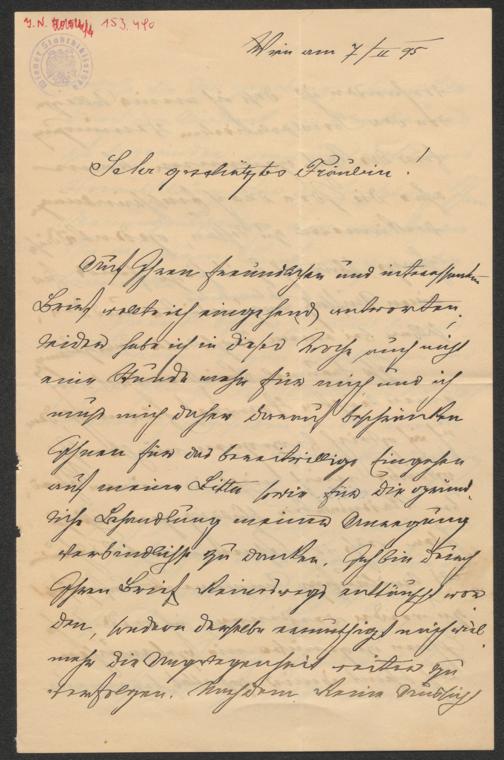 J. N. 153.490
Wiener Stadtbibliothek
Wien am 7/II 95
Sehr geschätztes Fräulein!
Auf Ihren freundlichen und interessanten
Brief wollte ich eingehend antworten,
leider habe ich in dieser Woche auch nicht
eine Stunde mehr für mich und ich
muß mich daher darauf beschränken
Ihnen für das bereitwillige Eingehen
auf meine Bitte sowie für die gründ-
liche Behandlung meiner Anregung
verbindlichst zu danken. Ich bin durch
Ihren Brief keineswegs enttäuscht wor
den, sondern derselbe ermuthigt mich viel
mehr die Angelegenheit weiter zu
verfolgen. Nachdem keine Aussicht